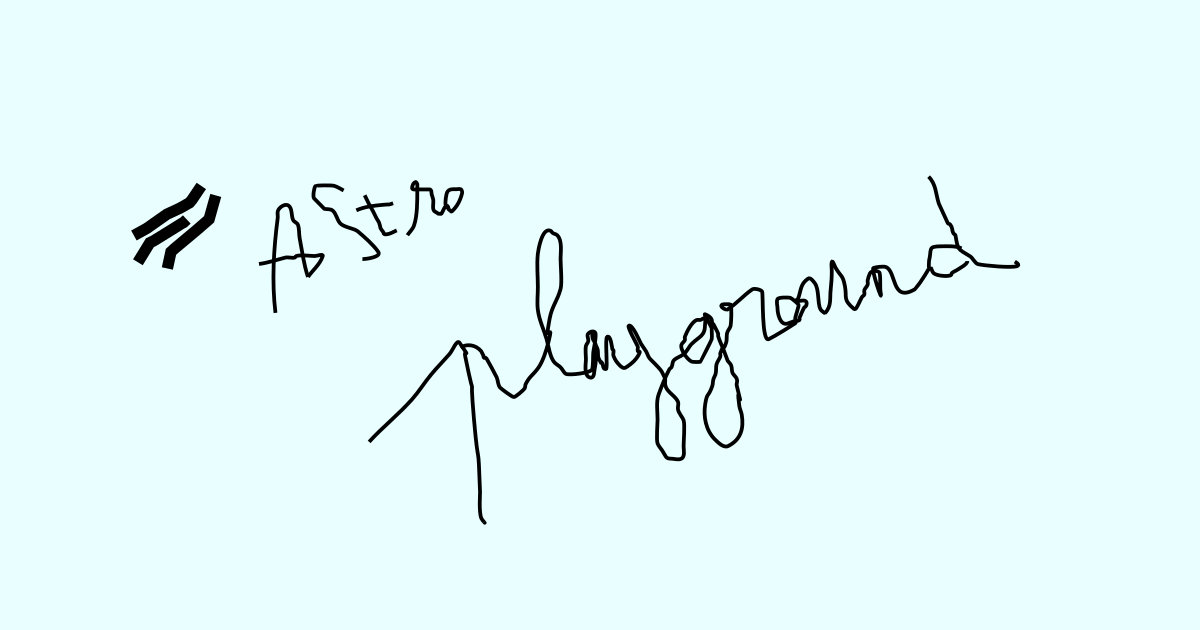 Astro
playground